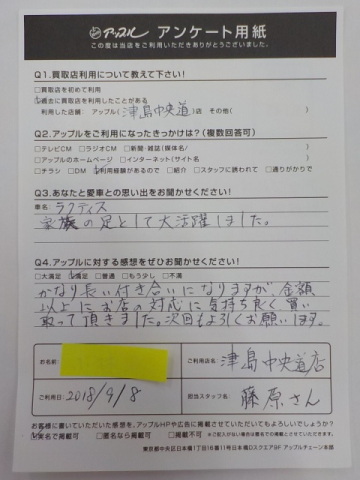 アップル アンケート用紙
この度は当店をご利用いただきありがとうございました。
Q1.買取店利用について教えて下さい!
□買取店を初めて利用
☑過去に買取店を利用したことがある
利用した店舗 アップル( 津島中央道 )店 その他( )
Q2.アップルをご利用になったきっかけは?(複数回答可)
□テレビCM □ラジオCM □新聞・雑誌(媒体名/ )
□アップルのホームページ □インターネット(サイト名 )
□チラシ □DM ☑利用経験があるので □紹介 □スタッフに誘われて □通りがかりで
Q3.あなたと愛車との思い出をお聞かせください!
車名 ラクティス
家族の足として大活躍しました。
Q4.アップルに対する感想をぜひお聞かせください!
□大満足 ☑満足 □普通 □もう少し □不満
かなり長い付き合いになりますが、金額
以上にお店の対応に気持ち良く買い
取って頂きました。次回もよろしくお願いします。
お名前
ご利用店名 津島中央道店
ご利用日: 2018/9/8
担当スタッフ名: 藤原さん
お客様に書いていただいた感想を、アップルHPや広告に掲載させていただいてもよろしいでしょうか?
☑実名で掲載可 □匿名なら掲載可 □掲載不可 ※ご記入がない場合は匿名での掲載とさせていただきます。
東京都中央区日本橋1丁目16番11号日本橋DスクエアGF アップルチェーン本部